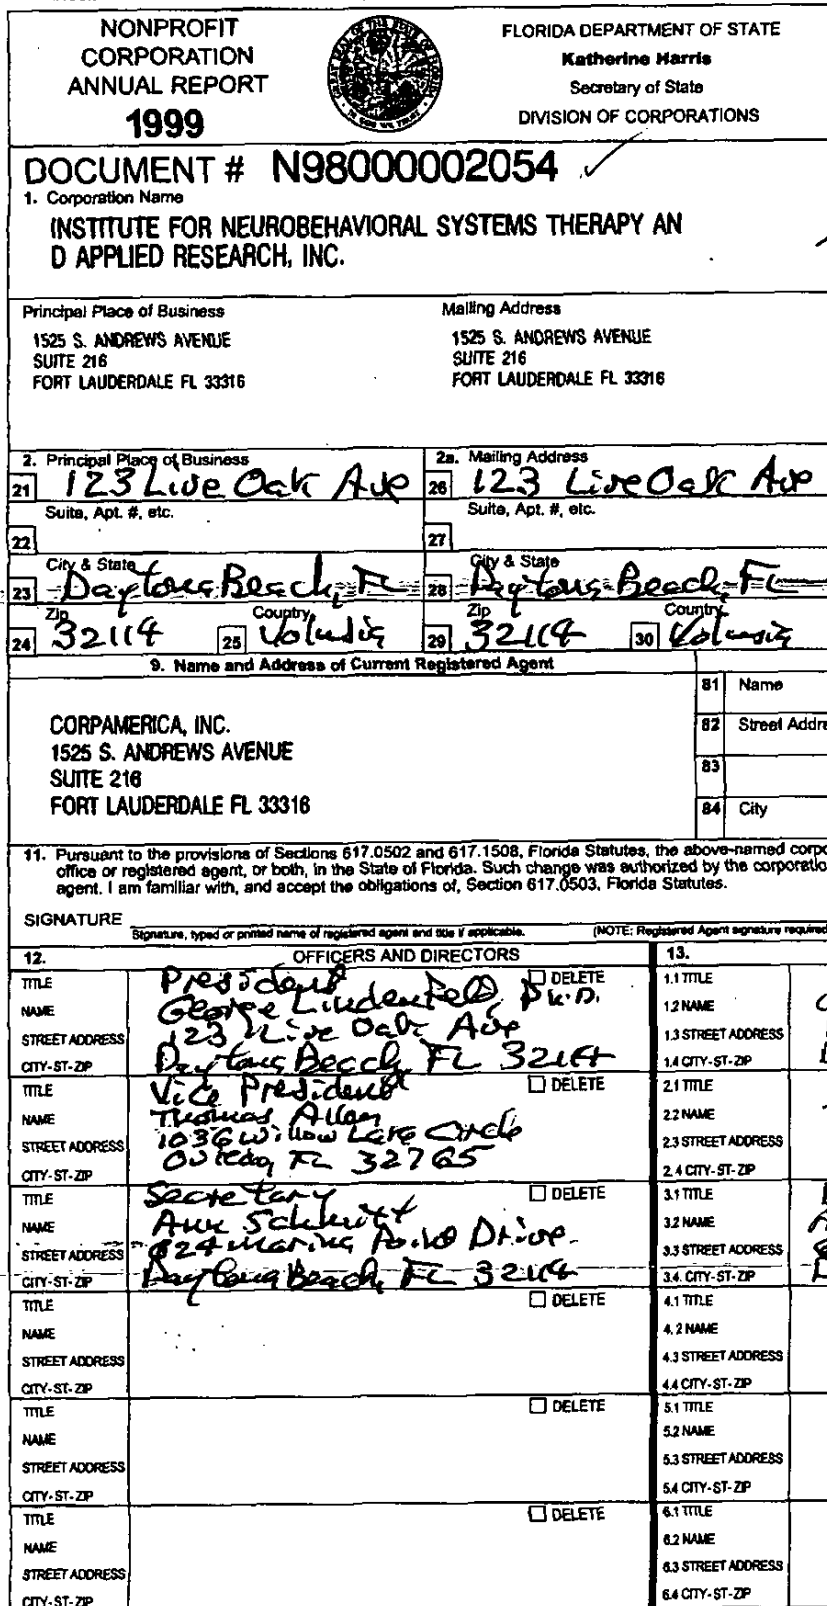 NONPROFIT
CORPORATION
ANNUAL REPORT
1999
FLORIDA DEPARTMENT OF STATE
Katherine Harris
Secretary of State
DIVISION OF CORPORATIONS
DOCUMENT # N98000002054
1. Corporation Name
INSTITUTE FOR NEUROBEHAVIORAL SYSTEMS THERAPY AN
D APPLIED RESEARCH, INC.
Principal Place of Business
1525 S. ANDREWS AVENUE
SUITE 216
FORT LAUDERDALE FL 33316
Mailing Address
1525 S. ANDREWS AVENUE
SUITE 216
FORT LAUDERDALE FL 33316
2. Principal Place of Business
21 123 Live Oak Ave
Suite, Apt. #, etc.
22
City & State
23 Daytona Beach, FL
Zip Country
24 32114 25 Volusia
2a. Mailing Address
26 123 Live Oak Ave
Suite, Apt. #, etc.
27
City & State
28 Daytona Beach, FL
Zip Country
29 32114 30 Volusia
9. Name and Address of Current Registered Agent
CORPAMERICA, INC.
1525 S. ANDREWS AVENUE
SUITE 216
FORT LAUDERDALE FL 33316
81 Name
82 Street Addre
83
84 City
11. Pursuant to the provisions of Sections 617.0502 and 617.1508, Florida Statutes, the above-named corpo
office or registered agent, or both, in the State of Florida. Such change was authorized by the corporatio
agent. I am familiar with, and accept the obligations of, Section 617.0503, Florida Statutes.
SIGNATURE
Signature, typed or printed name of registered agent and title if applicable. (NOTE: Registered Agent signature required
12. OFFICERS AND DIRECTORS
TITLE President DELETE
NAME George Lindenfeld, Ph.D.
STREET ADDRESS 123 Live Oak Ave
CITY-ST-ZIP Daytona Beach, FL 32114
TITLE Vice President DELETE
NAME Thomas Allen
STREET ADDRESS 1036 Willow Lake Circle
CITY-ST-ZIP Oviedo, FL 32765
TITLE Secretary DELETE
NAME Ann Schmitt
STREET ADDRESS 824 Marina Point Drive
CITY-ST-ZIP Daytona Beach, FL 32114
TITLE DELETE
NAME
STREET ADDRESS
CITY-ST-ZIP
TITLE DELETE
NAME
STREET ADDRESS
CITY-ST-ZIP
TITLE DELETE
NAME
STREET ADDRESS
CITY-ST-ZIP
13.
1.1 TITLE
1.2 NAME
1.3 STREET ADDRESS
1.4 CITY-ST-ZIP
2.1 TITLE
2.2 NAME
2.3 STREET ADDRESS
2.4 CITY-ST-ZIP
3.1 TITLE
3.2 NAME
3.3 STREET ADDRESS
3.4. CITY-ST-ZIP
4.1 TITLE
4.2 NAME
4.3 STREET ADDRESS
4.4 CITY-ST-ZIP
5.1 TITLE
5.2 NAME
5.3 STREET ADDRESS
5.4 CITY-ST-ZIP
6.1 TITLE
6.2 NAME
6.3 STREET ADDRESS
6.4 CITY-ST-ZIP